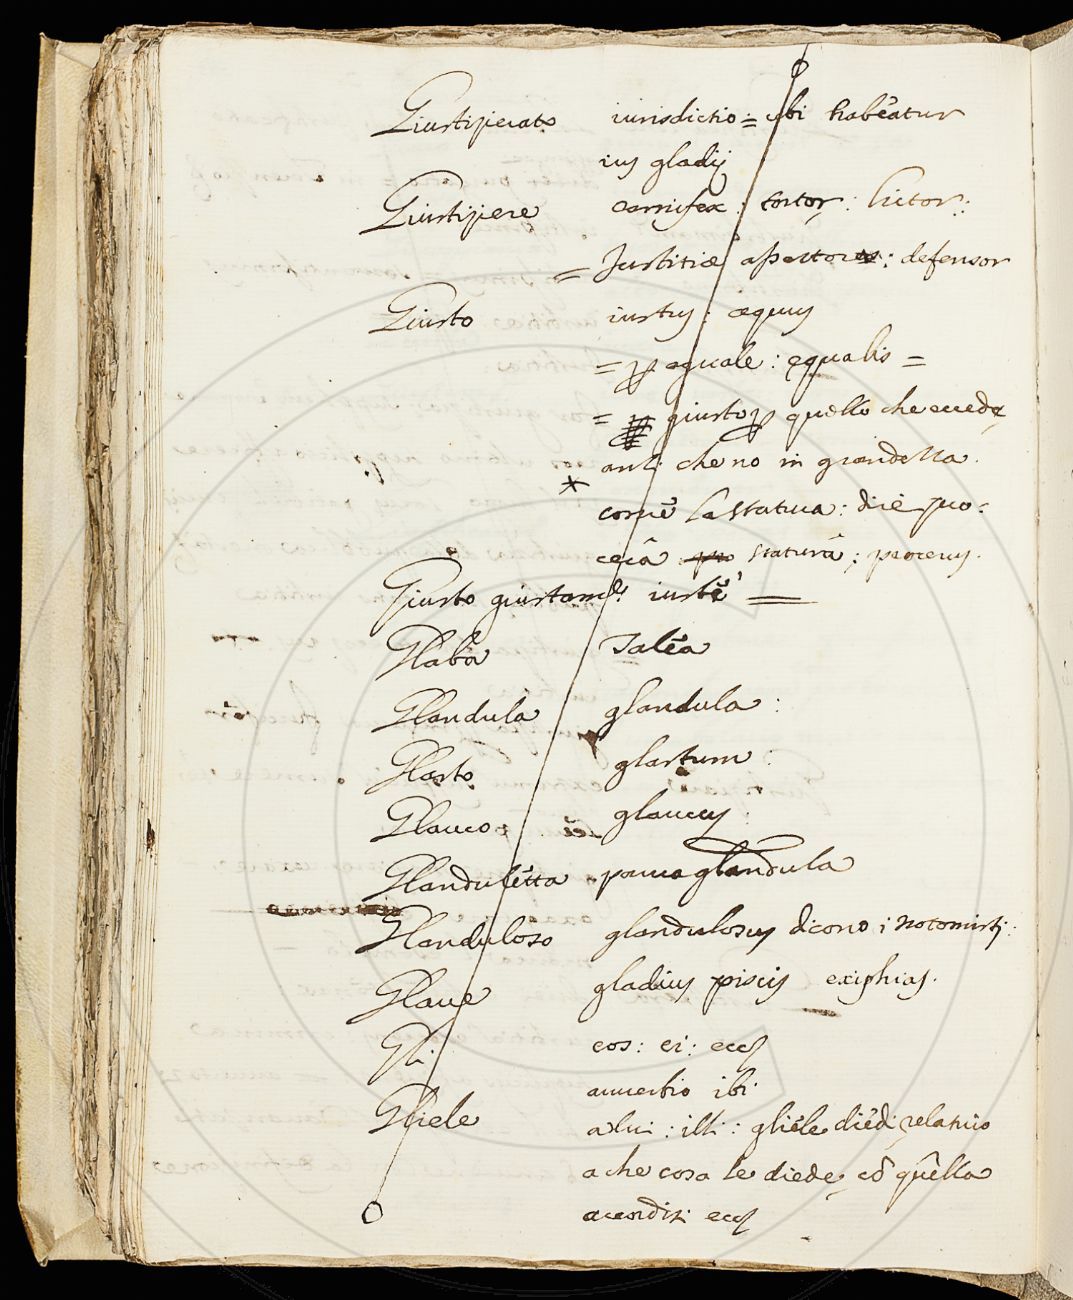 Giustizierato iurisdictio = ubi habeatur
ius gladij
Giustiziere carnifex : tortor : lictor :
= Justitiæ assertor : defensor
Giusto iustus : æquus
= p eguale : equalis =
= giusto p quello che eccede
anzi che no in grandezza.
come la statua : die pro-
cerâ staturâ ; procerus.
Giusto giustam.te iustè
Glaba Talea
Glandula glandula :
Glasto glastum :
Glauco glaucus :
Glanduletta parua glandula
Glanduloso glandulosus dicono i notomisti :
Glaue gladius piscis exiphias.
Gli eos : ei : ecc
auuerbio ibi
Gliele a lui : illi : gliele diedi relatiuo
a che cosa le diede, cõ quella
accordisi ecc